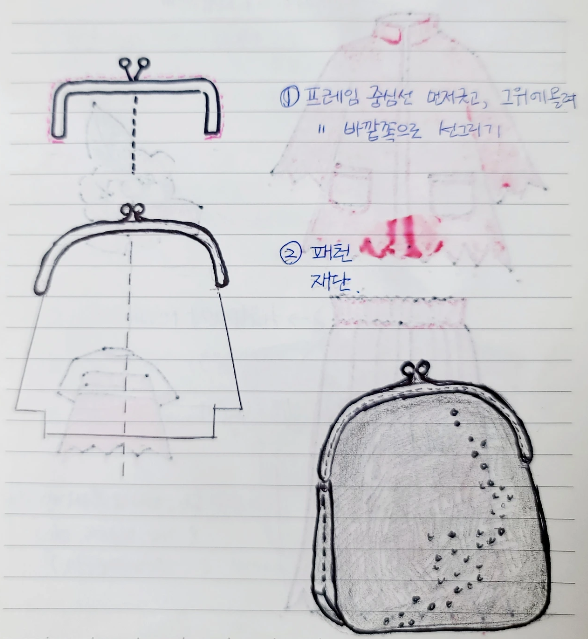 ① 프레임 중심선 먼저긋고, 그위에올려
〃 바깥쪽으로 선그리기
② 패턴
재단.